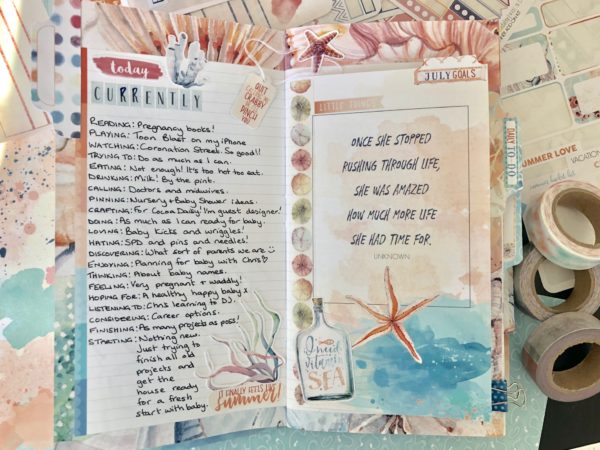 today
CURRENTLY
QUIT
CRABBY
PINCH
READING: Pregnancy books!
PLAYING: Toon Blast on my iPhone
WATCHING: Coronation Street. So good!!
TRYING TO: Do as much as I can.
EATING: Not enough! It's too hot too eat.
DRINKING: Milk! By the pint.
CALLING: Doctors and midwives.
PINNING: Nursery + Baby Shower ideas.
CRAFTING: For Cocoa Daisy! I'm guest designer!
DOING: As much as I can ready for baby.
LOVING: Baby kicks and wriggles!
HATING: SPD and pins and needles!
DISCOVERING: What sort of parents we are
ENJOYING: Planning for baby with Chris
THINKING: About baby names.
FEELING: Very pregnant + waddly!
HOPING FOR: A healthy happy baby x
LISTENING TO: Chris learning to DJ.
CONSIDERING: Career options.
FINISHING: As many projects as poss!
STARTING: Nothing new.
Just trying to
finish all old
projects and
get the
house ready
for a fresh
start with baby.
IT FINALLY FEELS LIKE
summer!
JULY GOALS
LITTLE THINGS
ONCE SHE STOPPED
RUSHING THROUGH LIFE,
SHE WAS AMAZED
HOW MUCH MORE LIFE
SHE HAD TIME FOR.
UNKNOWN
I need
vitamin
SEA
DAILY TO DO
SUMMER LOVE
VACATION
summer bucket list